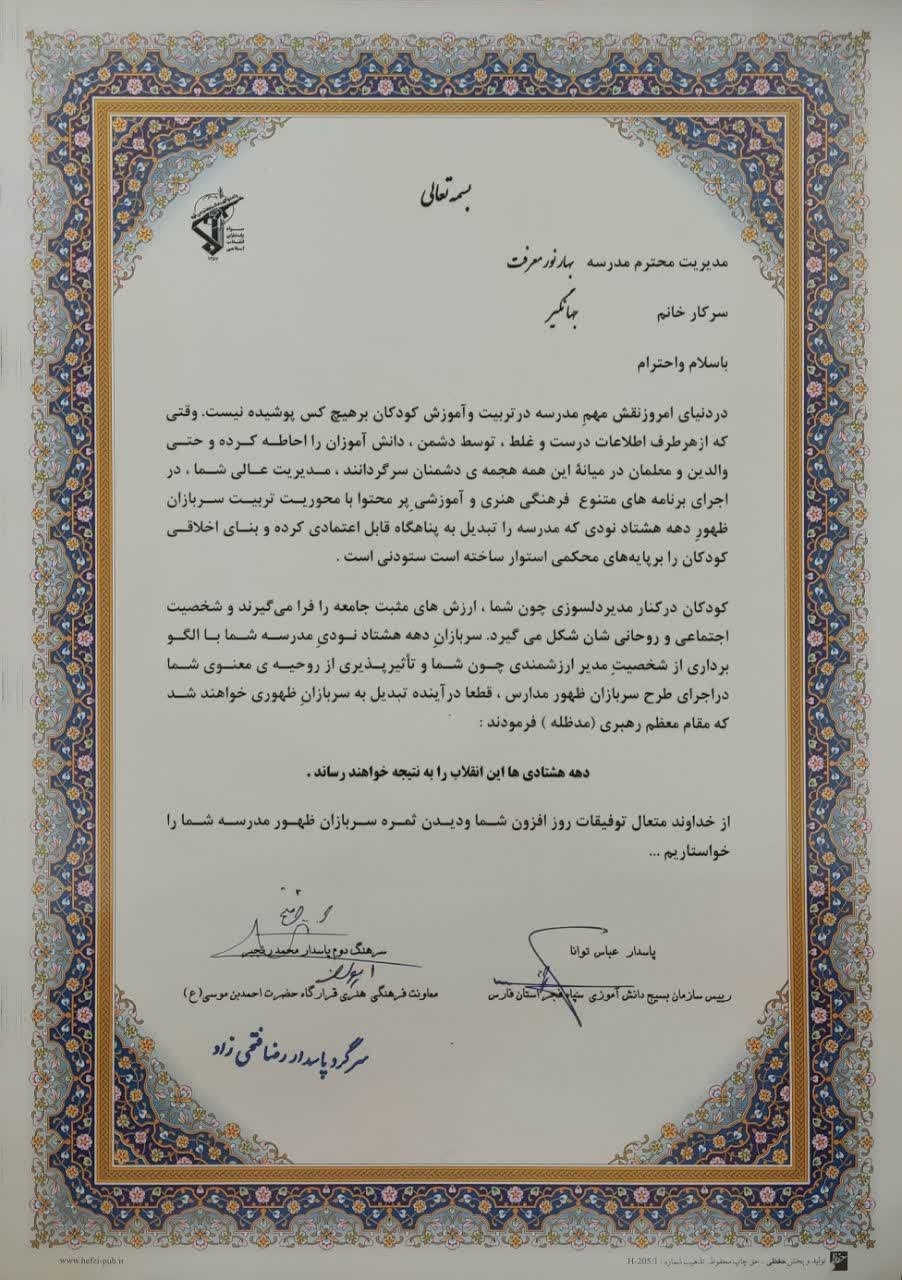 بسمه تعالی
سپاه
پاسداران
انقلاب
اسلامی
مدیریت محترم مدرسه بهار نور معرفت
سرکار خانم جهانگیر
باسلام واحترام
دردنیای امروزنقش مهمِ مدرسه درتربیت وآموزش کودکان برهیچ کس پوشیده نیست. وقتی
که ازهرطرف اطلاعات درست و غلط ، توسط دشمن ، دانش آموزان را احاطه کرده و حتی
والدین و معلمان در میانهٔ این همه هجمه ی دشمنان سرگردانند ، مدیریت عالی شما ، در
اجرای برنامه های متنوع فرهنگی هنری و آموزشی پر محتوا با محوریت تربیت سربازان
ظهورِ دهه هشتاد نودی که مدرسه را تبدیل به پناهگاه قابل اعتمادی کرده و بنای اخلاقی
کودکان را برپایه‌های محکمی استوار ساخته است ستودنی است .
کودکان درکنار مدیردلسوزی چون شما ، ارزش های مثبت جامعه را فرا می‌گیرند و شخصیت
اجتماعی و روحانی شان شکل می گیرد. سربازانِ دهه هشتاد نودیِ مدرسه شما با الگو
برداری از شخصیتِ مدیر ارزشمندی چون شما و تأثیرپذیری از روحیه ی معنوی شما
دراجرای طرح سربازان ظهور مدارس ، قطعا درآینده تبدیل به سربازانِ ظهوری خواهند شد
که مقام معظم رهبری (مدظله ) فرمودند :
دهه هشتادی ها این انقلاب را به نتیجه خواهند رساند .
از خداوند متعال توفیقات روز افزون شما ودیدن ثمره سربازان ظهور مدرسه شما را
خواستاریم ...
پاسدار عباس توانا
رییس سازمان بسیج دانش آموزی سپاه فجر استان فارس
سرهنگ دوم پاسدار محمد رنجبر
معاونت فرهنگی هنری قرارگاه حضرت احمدبن موسی(ع)
سرگرد پاسدار رضا فتحی زاد
تولید و پخش حفظی . حق چاپ محفوظ. تذهیب شماره : H-205/1
www.hefzi-pub.ir